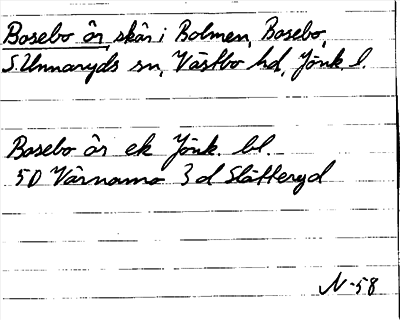 Bosebo ör, skär i Bolmen, Bosebo,
S. Unnaryds sn, Västbo hd, Jönk. l.
Bosebo ör ek Jönk. bl.
5D Värnamo 3d Slätteryd
N-58